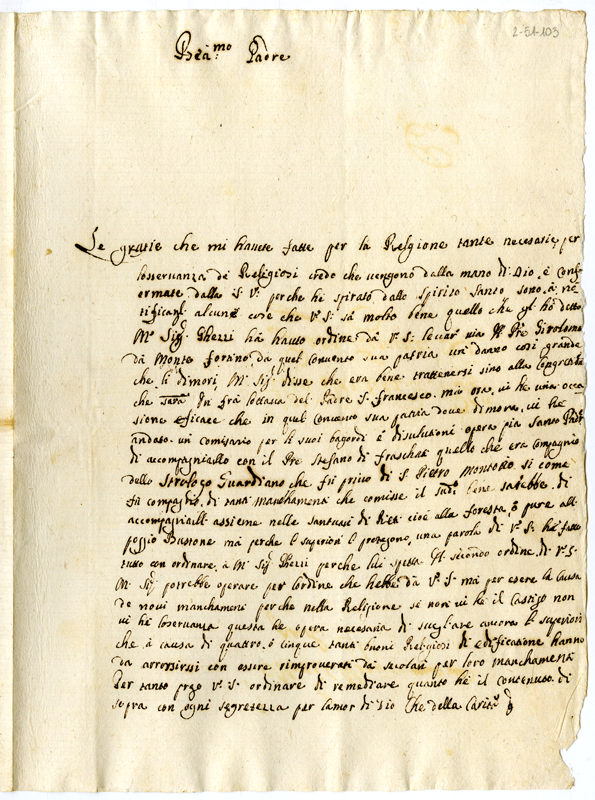 2-51-103
Bea:mo Padre
Le gratie che mi havete fatte per la Religione tante necesarie, per
losservanza de Religiosi credo che vengono dalla mano di Dio, é Conf
ermate dalla S. V. perche hé spirato dallo Spirito Santo sono à
alcune cose che V. S. sà molto bene quello che gl hò detto
Mo Sig Ghezzi hà hauto ordine dà V. S. levar via Pre Girolomo
dà Monte fortino, dà quel Convento sua patria un danno cosi grande
che li dimori, M. Sig disse che era bene trattenersi sino alla
che sarà In frà lottava del Padre S. francesco. mà ora vi hé una occa
sione eficace che in quel Convento sua patria Dove dimora, vi hé
andato un comisario per li suoi bagordi é disulutioni opera pia Santo Padr
di accompagniallo con il Pre Stefano di fraschati quello che era Compagnio
dello Strologo Guardiano che fù privo di S. Pietro Montorio, si come
fù compagnio di tanti manchamenti che comisse il sud bene sarebbe di
accompagniall assieme nelle santuari di Rieti cioé alla foresta, ò pure all
poggio Bustone mà perche li superiori l protegono, una parola di V. S. hà fatto
tutto con ordinare à M. Sig Ghezzi perche lui spetta secondo ordine di V. S.
M. Sig potrebbe operare per lordine che hebbe dà V. S. mà per esere la Causa
de novi manchamenti perche nella Religione se non vi hé il Castigo non
vi hé losservanza questa hé opera necesaria di svegliare ancora li superiori
che à causa di quattro, ò cinque tanti buoni Religiosi di edificatione hanno
da arrorsirssi con essere rimproverati dà secolari per loro manchamenti
Per tanto prego V. S. ordinare di remediare quanto hé il contenuto di
sopra con ogni segretezza per lamor di Dio Che della Carità